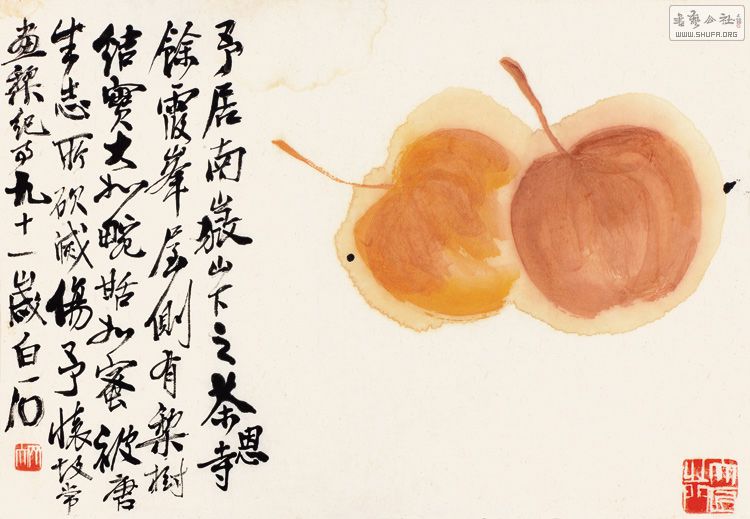 書藝公社
WWW.SHUFA.ORG
予居南嶽山下之茶恩寺
餘霞峯屋側有梨樹
結實大如畹甜如蜜被唐
生志所砍滅傷予懷故常
画梨紀事九十一歲白石